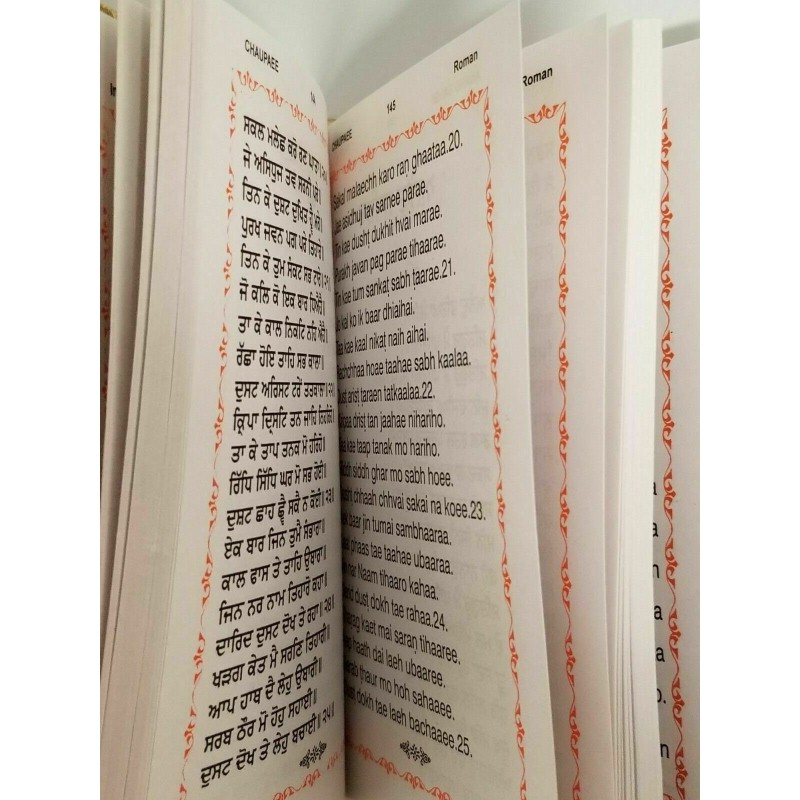 CHAUPAEE
14
ਸਕਲ ਮਲੇਛ ਕਰੋ ਰਣ ਘਾਤਾ॥੨੦॥
ਜੇ ਅਸਿਧੁਜ ਤਵ ਸਰਨੀ ਪਰੇ॥
ਤਿਨ ਕੇ ਦੁਸ਼ਟ ਦੁਖਿਤ ਹ੍ਵੈ ਮਰੇ॥
ਪੁਰਖ ਜਵਨ ਪਗ ਪਰੇ ਤਿਹਾਰੇ॥
ਤਿਨ ਕੇ ਤੁਮ ਸੰਕਟ ਸਭ ਟਾਰੇ॥੨੧॥
ਜੋ ਕਲਿ ਕੋ ਇਕ ਬਾਰ ਧਿਐਹੈ॥
ਤਾ ਕੇ ਕਾਲ ਨਿਕਟਿ ਨਹਿ ਐਹੈ॥
ਰੱਛਾ ਹੋਇ ਤਾਹਿ ਸਭ ਕਾਲਾ॥
ਦੁਸਟ ਅਰਿਸਟ ਟਰੇਂ ਤਤਕਾਲਾ॥੨੨॥
ਕ੍ਰਿਪਾ ਦ੍ਰਿਸਟਿ ਤਨ ਜਾਹਿ ਨਿਹਰਿਹੋ॥
ਤਾ ਕੇ ਤਾਪ ਤਨਕ ਮੋ ਹਰਿਹੋ॥
ਰਿੱਧਿ ਸਿੱਧਿ ਘਰ ਮੋ ਸਭ ਹੋਈ॥
ਦੁਸ਼ਟ ਛਾਹ ਛ੍ਵੈ ਸਕੈ ਨ ਕੋਈ॥੨੩॥
ਏਕ ਬਾਰ ਜਿਨ ਤੁਮੈ ਸੰਭਾਰਾ॥
ਕਾਲ ਫਾਸ ਤੇ ਤਾਹਿ ਉਬਾਰਾ॥
ਜਿਨ ਨਰ ਨਾਮ ਤਿਹਾਰੋ ਕਹਾ॥
ਦਾਰਿਦ ਦੁਸਟ ਦੋਖ ਤੇ ਰਹਾ॥੨੪॥
ਖੜਗ ਕੇਤ ਮੈ ਸਰਣਿ ਤਿਹਾਰੀ॥
ਆਪ ਹਾਥ ਦੈ ਲੇਹੁ ਉਬਾਰੀ॥
ਸਰਬ ਠੌਰ ਮੋ ਹੋਹੁ ਸਹਾਈ॥
ਦੁਸਟ ਦੋਖ ਤੇ ਲੇਹੁ ਬਚਾਈ॥੨੫॥
CHAUPAEE 145 Roman
Sakal malaechh karo raṇ ghaataa.20.
Jae asidhuj tav sarnee parae.
Tin kae dushṭ dukhit hvai marae.
Purakh javan pag parae tihaarae.
Tin kae tum sankaṭ sabh taarae.21.
Jo kal ko ik baar dhiaihai.
Taa kae kaal nikaṭ naih aihai.
Rachchhaa hoae taahae sabh kaalaa.
Dust arisṭ ṭaraen tatkaalaa.22.
Kirpaa drisṭ tan jaahae nihariho.
Taa kae taap tanak mo hariho.
siddh ghar mo sabh hoee.
chhaah chhvai sakai na koee.23.
baar jin tumai sambhaaraa.
phaas tae taahae ubaaraa.
nar Naam tihaaro kahaa.
dust dokh tae rahaa.24.
kaet mai saraṇ tihaaree.
haath dai laeh ubaaree.
ṭhaur mo hoh sahaaee.
dokh tae laeh bachaaee.25.
Roman